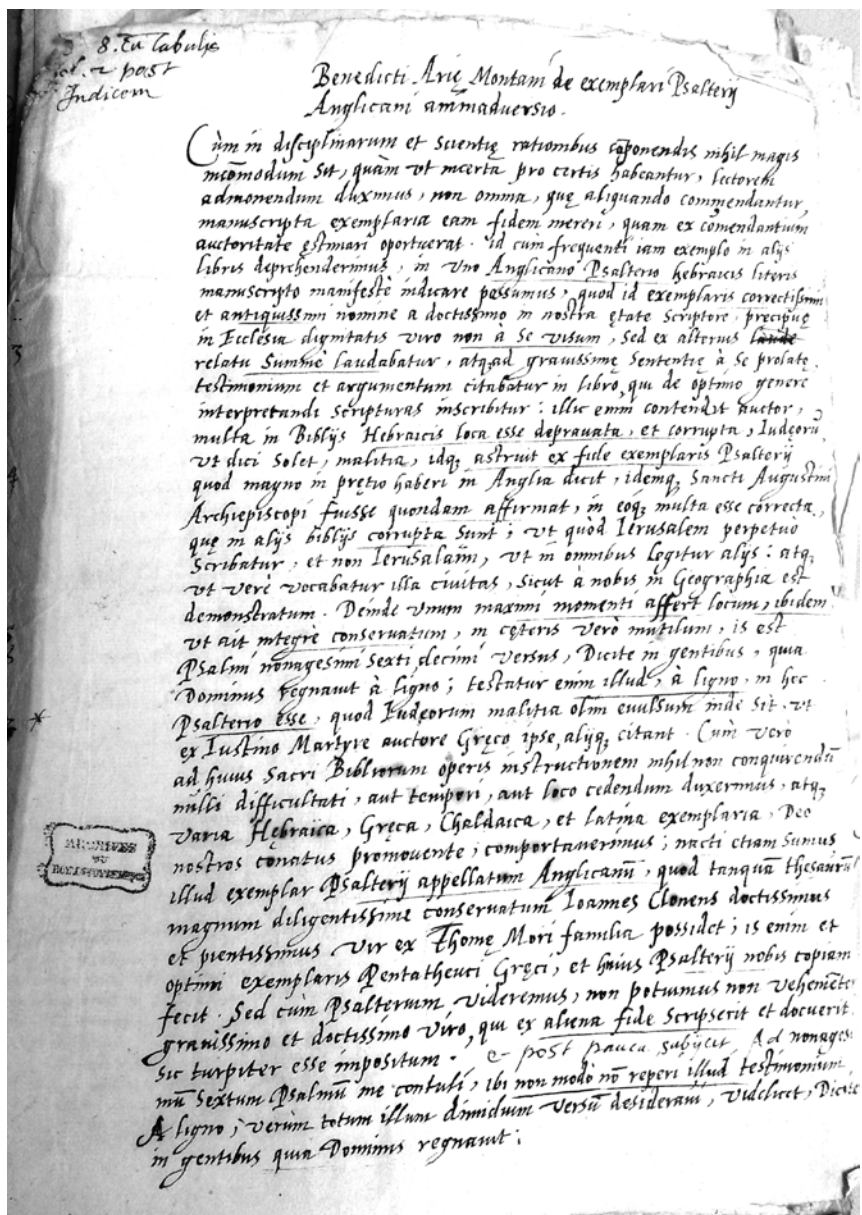 8. Tu tabulis
fol. 2 post
Indicem
Benedicti Arię Montani de exemplari Psalterij
Anglicani animadversio.
Cùm in disciplinarum et scientię rationibus cōponendis nihil magis
incōmodum sit, quàm vt incerta pro certis habeantur, lectorem
admonendum duximus, non omnia, quę aliquando commendantur,
manuscripta exemplaria eam fidem mereri, quam ex comendantium
auctoritate ęstimari oportuerat. id cum frequenti iam exemplo in alijs
libris deprehenderimus, in vno Anglicano Psalterio hebraicis literis
manuscripto manifestè indicare possumus, quod id exemplaris correctissimi
et antiquissimi nomine a doctissimo in nostra ętate scriptore, precipuę
in Ecclesia dignitatis viro non à se visum, sed ex alterius laude
relatu summè laudabatur, atq, ad grauissimę sententię à se prolatę
testimonium et argumentum citabatur in libro, qui de optimo genere
interpretandi scripturas inscribitur: illic enim contendit auctor,
multa in Biblijs Hebraicis loca esse deprauata, et corrupta, Iudęorū
vt dici solet, malitia, idq, astruit ex fide exemplaris Psalterij
quod magno in prętio haberi in Anglia dicit, idemq, sancti Augustini
Archiepiscopi fuisse quondam affirmat, in eoq, multa esse correcta,
quę in alijs biblijs corrupta sunt; vt quòd Ierusalem perpetuò
scribatur, et non Ierusalaim, vt in omnibus legitur alijs: atq,
vt verè vocabatur illa civitas, sicut à nobis in Geographia est
demonstratum. Deinde vnum maximi momenti affert locum, ibidem
vt ait integrè conservatum, in cęteris verò mutilum, is est
Psalmi nonagesimi sexti, decimi versus, Dicite in gentibus, quia
Dominus regnauit à ligno; testatur enim illud, à ligno, in hec
Psalterio esse, quod Iudeorum malitia olim euulsum inde sit, vt
ex Iustino Martyre auctore Gręco ipse, alijq, citant. Cùm verò
ad huius sacri Bibliorum operis instructionem nihil non conquirendū
nulli difficultati, aut tempori, aut loco cedendum duxerimus, atq,
varia Hębraica, Gręca, Chaldaica, et latina exemplaria, Deo
nostros cōnatus promouente, comportauerimus; nacti etiam sumus
illud exemplar Psalterij appellatum Anglicanū, quod tanquā thesaurū
magnum diligentissime conseruatum Ioannes Clemens doctissimus
et pientissimus vir ex Thomę Mori familia possidet; is enim et
optimi exemplaris Pentatheuci Gręci, et huius Psalterij nobis copiam
fecit. Sed cùm Psalterium videremus, non potuimus non vehementer
grauissimo et doctissimo viro, qui ex aliena fide scripserit et docuerit
sic turpiter esse impositum. & post pauca subijcit Ad nonagesi
mū sextum Psalmū me contuli, ibi non modò nō reperi illud testimonium
A ligno; verùm totum illum dimidium versū desideraui, videlicet, Dicite
in gentibus quia Dominus regnauit: